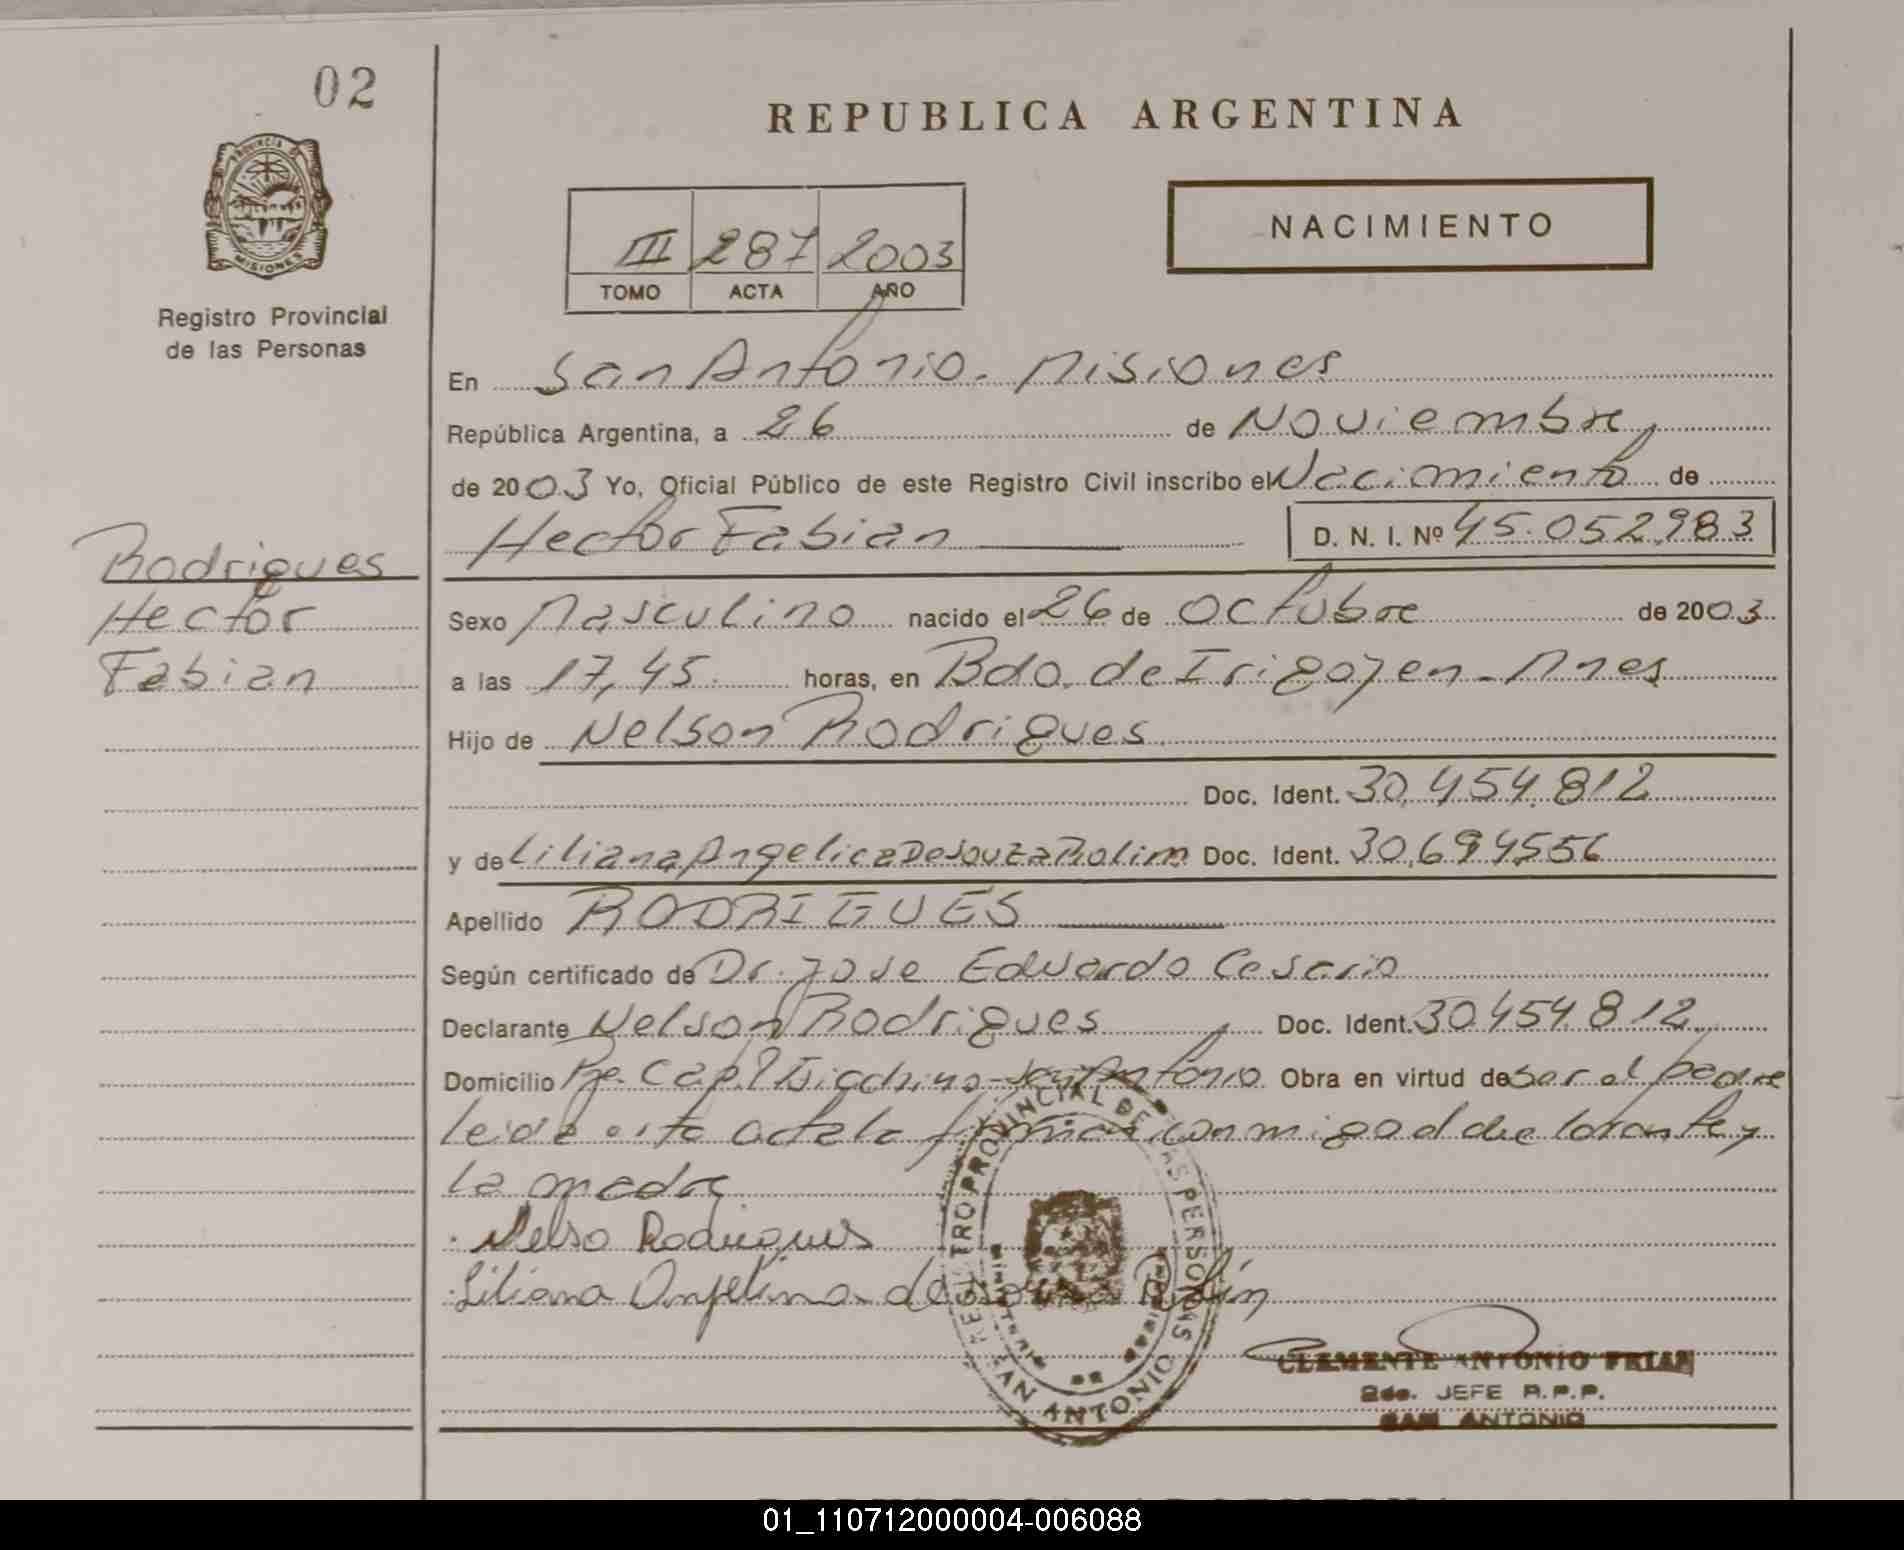 02
PROVINCIA DE
MISIONES
Registro Provincial
de las Personas
Rodrigues
Hector
Fabian
REPUBLICA ARGENTINA
III 287 2003
TOMO ACTA AÑO
NACIMIENTO
En San Antonio. Misiones
República Argentina, a 26 de Noviembre,
de 2003 Yo, Oficial Público de este Registro Civil inscribo el Nacimiento de
Hector Fabian D. N. I. Nº 45.052.983
Sexo Masculino nacido el 26 de Octubre de 2003
a las 17,45. horas, en Bdo. de Irigoyen - Mnes
Hijo de Nelson Rodrigues
Doc. Ident. 30.454.812
y de Liliana Angelica De Souza Rolim Doc. Ident. 30.694556
Apellido RODRIGUES
Según certificado de Dr. Jose Eduardo Cesario
Declarante Nelson Rodrigues Doc. Ident. 30.454.812
Domicilio San Antonio Obra en virtud de ser el padre
leida esta acta la firman conmigo el declarante y
la madre
Nelso Rodrigues
Liliana Angelina de Rolim
REGISTRO PROVINCIAL DE LAS PERSONAS
SAN ANTONIO
CLEMENTE ANTONIO FRIAS
2do. JEFE R.P.P.
SAN ANTONIO
01_110712000004-006088